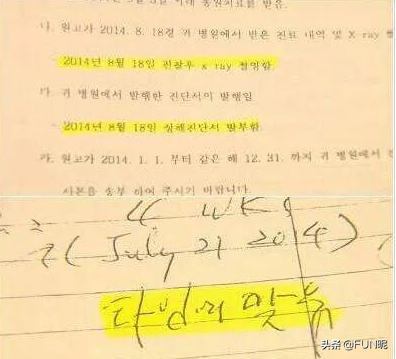 나. 원고가 2014. 8. 18경 귀 병원에서 받은 진료 내역 및 X-ray
- 2014년 8월 18일 진찰후 x ray 촬영함.
다. 귀 병원에서 발행한 진단서의 발행일
- 2014년 8월 18일 상해진단서 발부함.
라. 원고가 2014. 1. 1. 부터 같은 해 12. 31. 까지 귀 병원에서
사본을 송부 하여 주시기 바랍니다.
4 WKs
(July 21 2014)
타인에 맞음
头条 @FUN呢